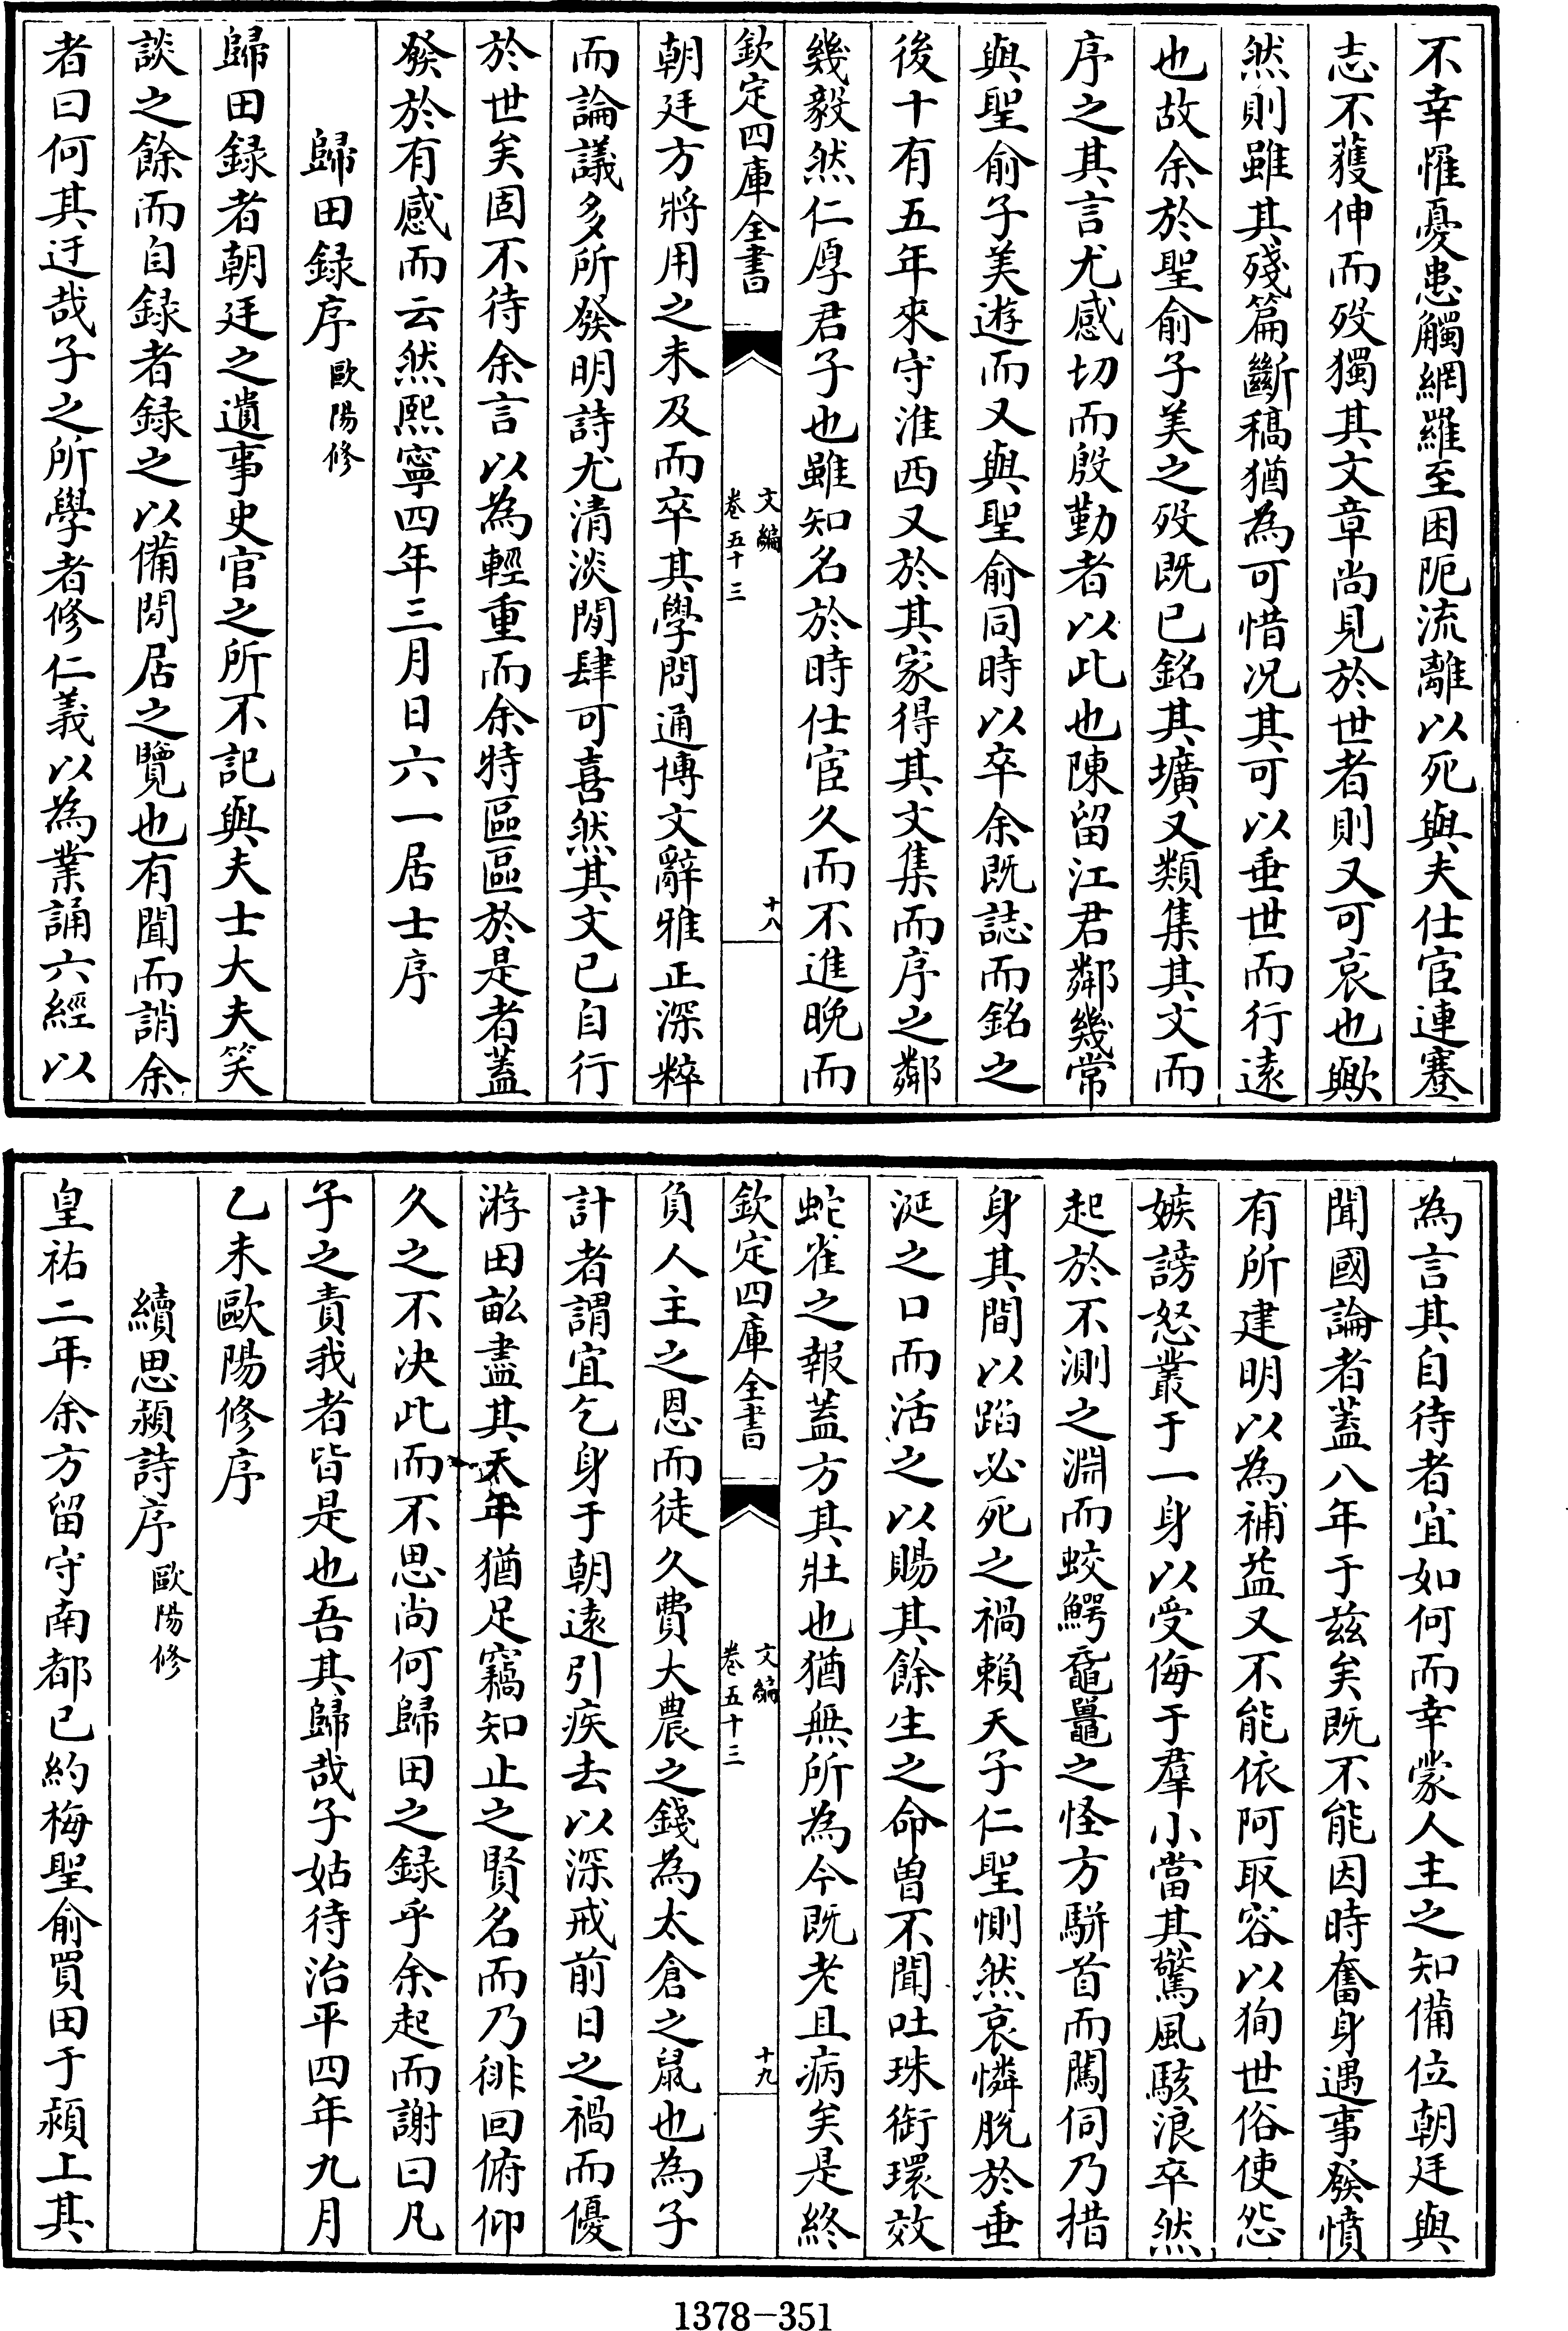 不幸罹憂患觸網羅至困阨流離以死與夫仕宦連蹇
志不獲伸而歿獨其文章尚見於世者則又可哀也歟
然則雖其殘篇斷稿猶為可惜况其可以垂世而行逺
也故余於聖俞子美之歿既已銘其壙又類集其文而
序之其言尤感切而殷勤者以此也陳留江君鄰幾常
與聖俞子美遊而又與聖俞同時以卒余既誌而銘之
後十有五年來守淮西又於其家得其文集而序之鄰
幾毅然仁厚君子也雖知名於時仕宦久而不進晚而
欽定四庫全書
文編
卷五十三
十八
朝廷方將用之未及而卒其學問通博文辭雅正深粹
而論議多所發明詩尤清淡閒肆可喜然其文已自行
於世矣固不待余言以為輕重而余特區區於是者蓋
發於有感而云然熙寧四年三月日六一居士序
歸田録序歐陽修
歸田録者朝廷之遺事史官之所不記與夫士大夫笑
談之餘而自録者録之以備閒居之覽也有聞而誚余
者曰何其迂哉子之所學者修仁義以為業誦六經以
為言其自待者宜如何而幸蒙人主之知備位朝廷與
聞國論者蓋八年于兹矣既不能因時奮身遇事發憤
有所建明以為補益又不能依阿取容以狥世俗使怨
嫉謗怒叢于一身以受侮于羣小當其驚風駭浪卒然
起於不測之淵而蛟鰐黿鼉之怪方駢首而闖伺乃措
身其間以蹈必死之禍賴天子仁聖惻然哀憐脱於垂
涎之口而活之以賜其餘生之命曽不聞吐珠銜環效
蛇雀之報蓋方其壯也猶無所為今既老且病矣是終
欽定四庫全書
文編
卷五十三
十九
負人主之恩而徒久費大農之錢為太倉之鼠也為子
計者謂宜乞身于朝逺引疾去以深戒前日之禍而優
游田畝盡其天年猶足竊知止之賢名而乃徘回俯仰
久之不决此而不思尚何歸田之録乎余起而謝曰凡
子之責我者皆是也吾其歸哉子姑待治平四年九月
乙未歐陽修序
續思潁詩序歐陽修
皇祐二年余方留守南都已約梅聖俞買田于潁上其
1378-351